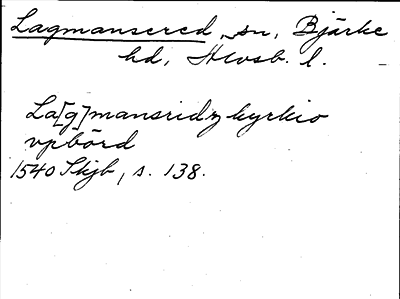 Lagmansered, sn, Bjärke
hd, Älvsb. l.
La[g]mansridz kyrkio
vpbörd
1540 Skjb, s. 138.